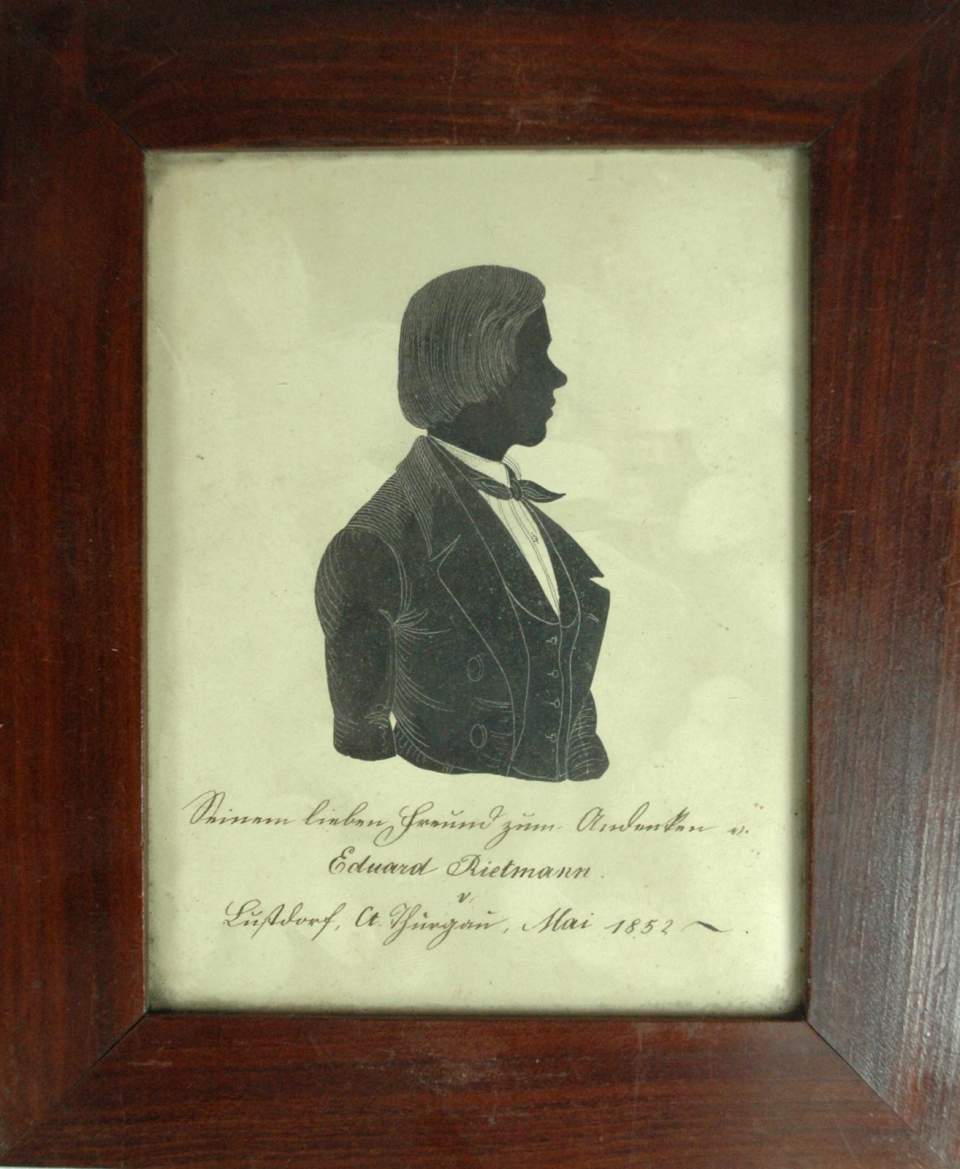 Seinem lieben Freund zum Andenken v.
Eduard Rietmann.
v.
Lustdorf, Ct. Thurgau, Mai 1852